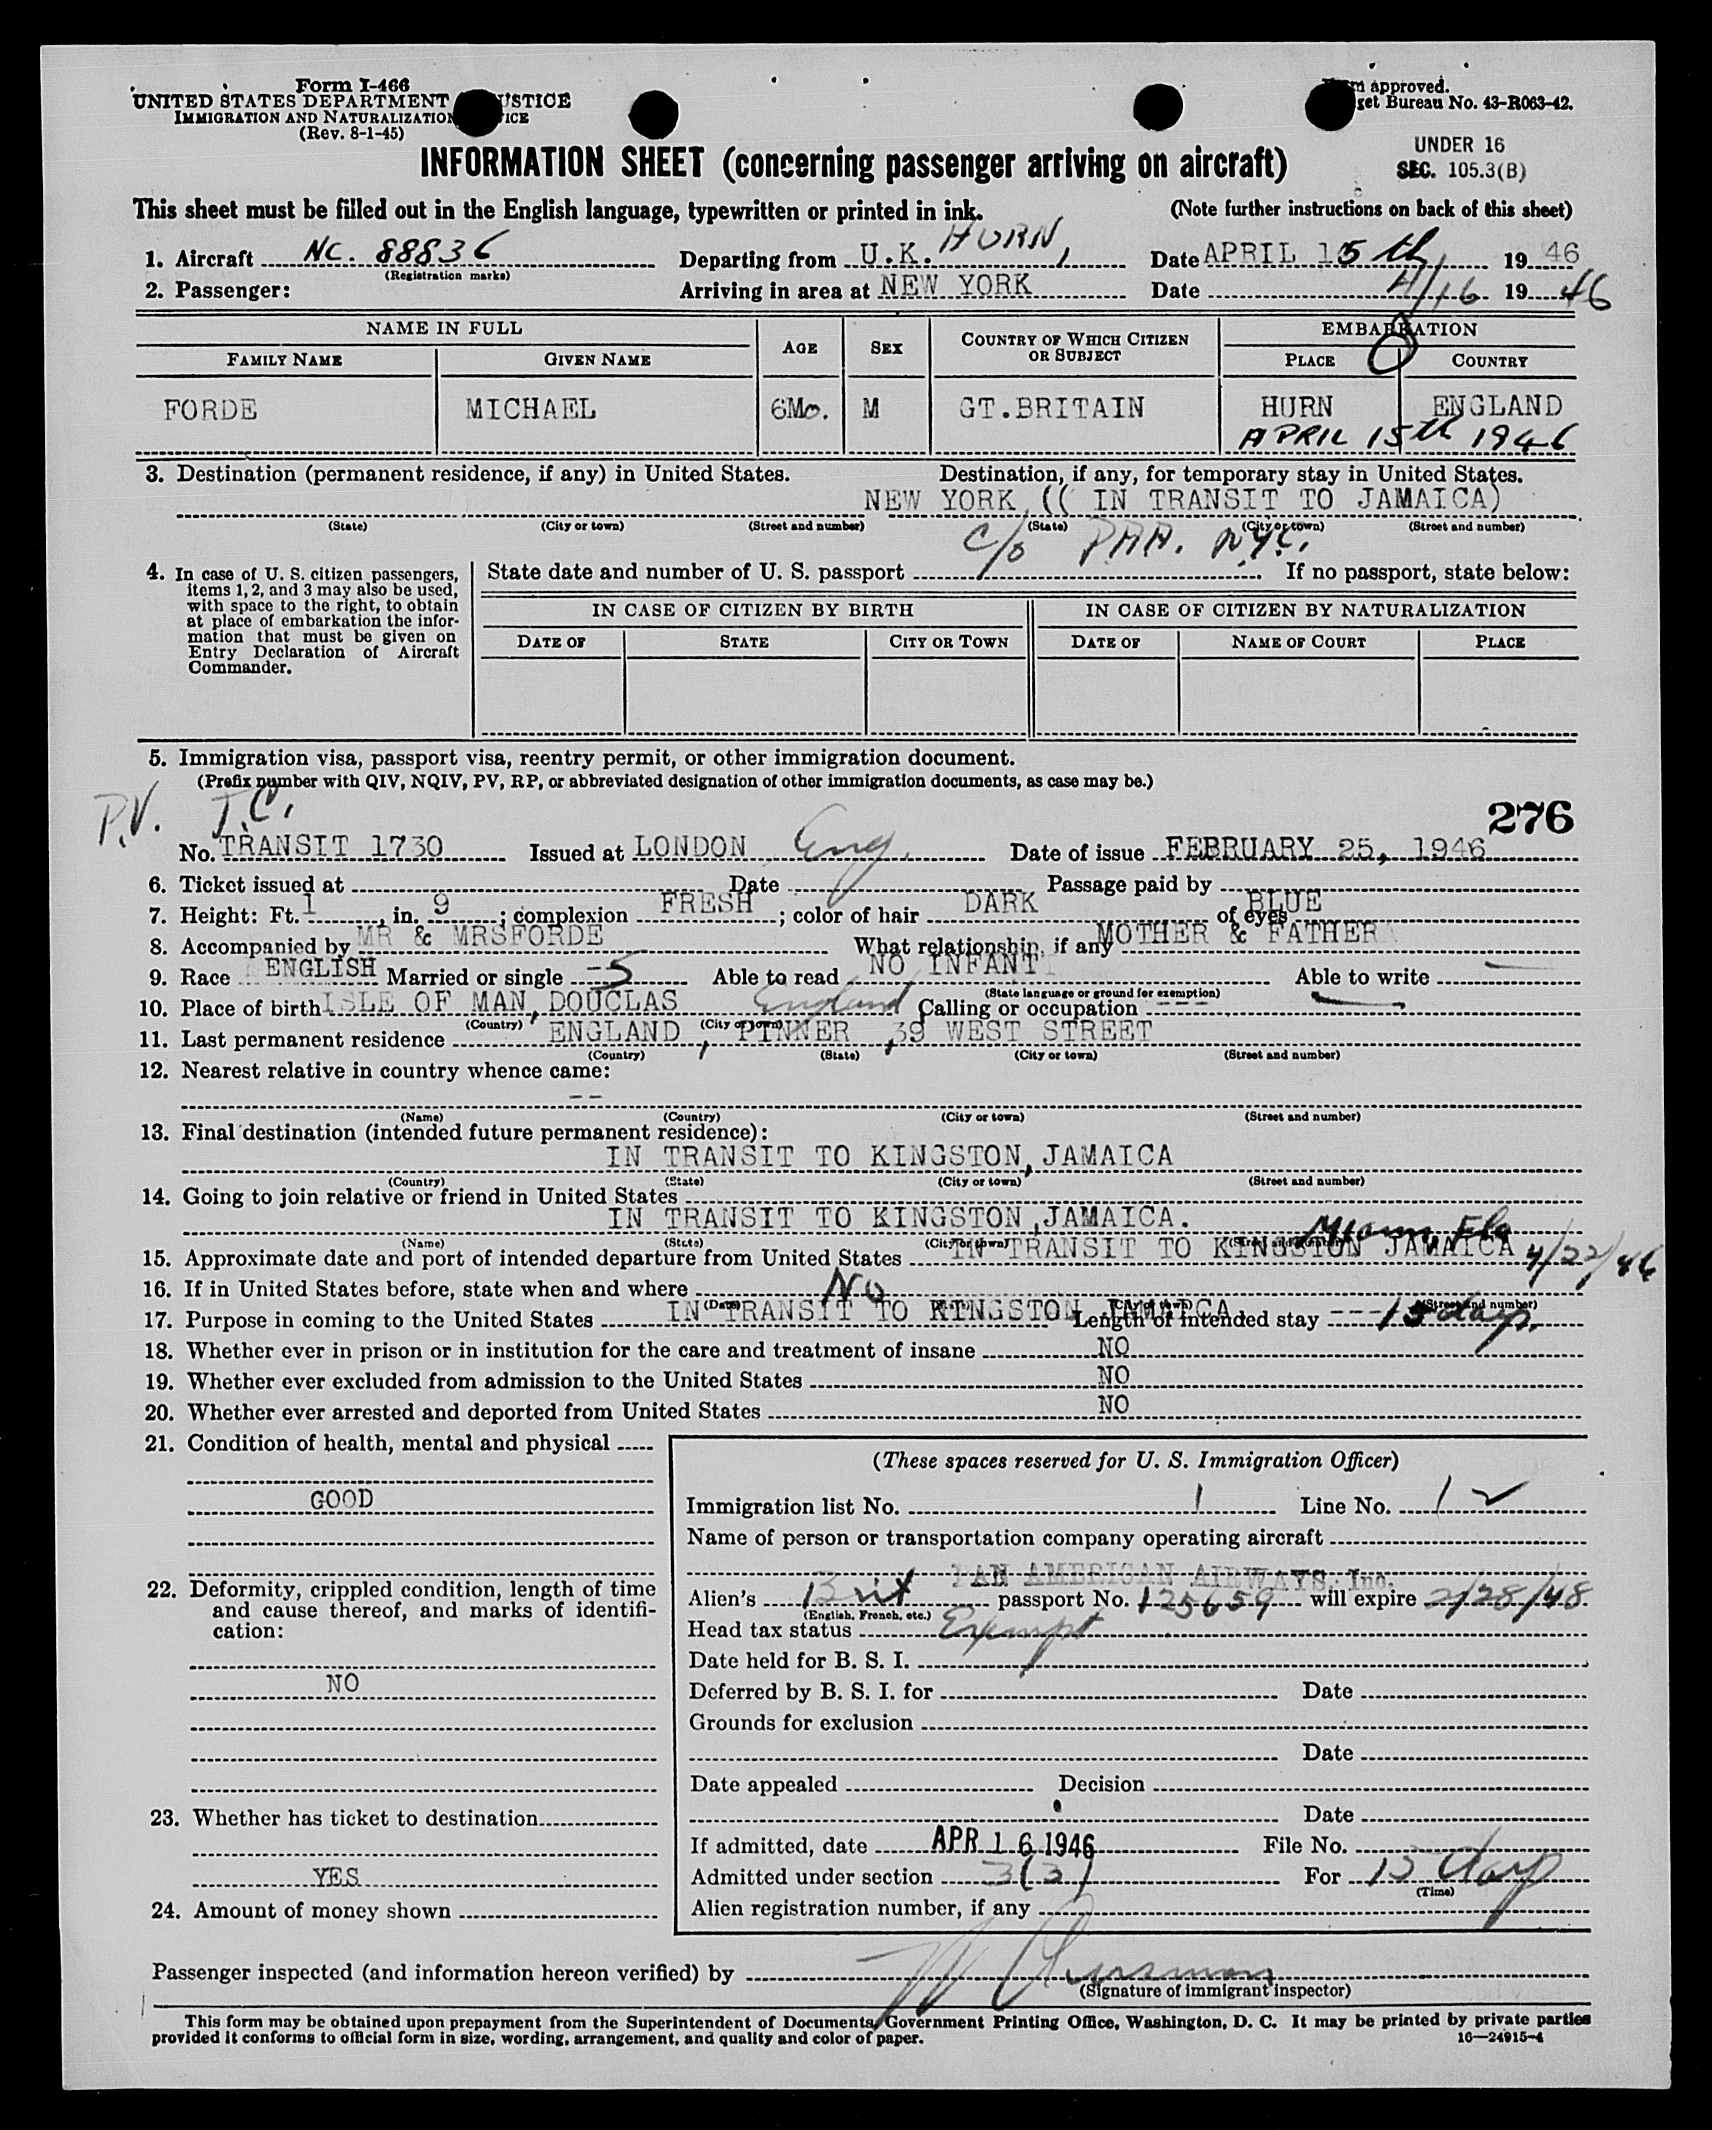 Form I-466
UNITED STATES DEPARTMENT USTICE
IMMIGRATION AND NATURALIZATION ICE
(Rev. 8-1-45)
m approved.
get Bureau No. 43-R063-42.
UNDER 16
SEC. 105.3(B)
INFORMATION SHEET (concerning passenger arriving on aircraft)
This sheet must be filled out in the English language, typewritten or printed in ink. (Note further instructions on back of this sheet)
1. Aircraft NC. 88836 Departing from U.K. HURN, Date APRIL 15th 1946
(Registration marks)
2. Passenger: Arriving in area at NEW YORK Date 4/16 1946
NAME IN FULL AGE SEX COUNTRY OF WHICH CITIZEN OR SUBJECT EMBARKATION
FAMILY NAME GIVEN NAME PLACE COUNTRY
FORDE MICHAEL 6Mo. M GT.BRITAIN HURN ENGLAND
APRIL 15th 1946
3. Destination (permanent residence, if any) in United States. Destination, if any, for temporary stay in United States.
NEW YORK, (( IN TRANSIT TO JAMAICA)
(State) (City or town) (Street and number) (State) (City or town) (Street and number)
c/o PAA. NYC.
4. In case of U. S. citizen passengers, items 1, 2, and 3 may also be used, with space to the right, to obtain at place of embarkation the information that must be given on Entry Declaration of Aircraft Commander.
State date and number of U. S. passport If no passport, state below:
IN CASE OF CITIZEN BY BIRTH IN CASE OF CITIZEN BY NATURALIZATION
DATE OF STATE CITY OR TOWN DATE OF NAME OF COURT PLACE
5. Immigration visa, passport visa, reentry permit, or other immigration document.
(Prefix number with QIV, NQIV, PV, RP, or abbreviated designation of other immigration documents, as case may be.)
P.V. T.C.
276
No. TRANSIT 1730 Issued at LONDON Eng. Date of issue FEBRUARY 25, 1946
6. Ticket issued at Date Passage paid by
7. Height: Ft. 1, in. 9; complexion FRESH; color of hair DARK of eyes BLUE
8. Accompanied by MR & MRSFORDE What relationship, if any MOTHER & FATHER
9. Race ENGLISH Married or single -S Able to read NO INFANT Able to write —
(State language or ground for exemption)
10. Place of birth ISLE OF MAN, DOUGLAS England Calling or occupation ---
(Country) (City or town)
11. Last permanent residence ENGLAND, PINNER, 39 WEST STREET
(Country) (State) (City or town) (Street and number)
12. Nearest relative in country whence came:
--
(Name) (Country) (City or town) (Street and number)
13. Final destination (intended future permanent residence):
IN TRANSIT TO KINGSTON, JAMAICA
(Country) (State) (City or town) (Street and number)
14. Going to join relative or friend in United States
IN TRANSIT TO KINGSTON, JAMAICA.
(Name) (State) (City or town) (Street and number)
Miami, Fla
15. Approximate date and port of intended departure from United States IN TRANSIT TO KINGSTON JAMAICA 4/22/46
16. If in United States before, state when and where No
(Date) (City or town) (Street and number)
17. Purpose in coming to the United States IN TRANSIT TO KINGSTON JAMAICA Length of intended stay ---15 days.
18. Whether ever in prison or in institution for the care and treatment of insane NO
19. Whether ever excluded from admission to the United States NO
20. Whether ever arrested and deported from United States NO
21. Condition of health, mental and physical
GOOD
22. Deformity, crippled condition, length of time and cause thereof, and marks of identification:
NO
23. Whether has ticket to destination
YES
24. Amount of money shown
(These spaces reserved for U. S. Immigration Officer)
Immigration list No. 1 Line No. 12
Name of person or transportation company operating aircraft
PAN AMERICAN AIRWAYS, Inc.
Alien's Brit passport No. 125659 will expire 2/28/48
(English, French, etc.)
Head tax status Exempt
Date held for B. S. I.
Deferred by B. S. I. for Date
Grounds for exclusion
Date
Date appealed Decision
Date
If admitted, date APR 16 1946 File No.
Admitted under section 3(3) For 15 days
(Time)
Alien registration number, if any
Passenger inspected (and information hereon verified) by
(Signature of immigrant inspector)
This form may be obtained upon prepayment from the Superintendent of Documents, Government Printing Office, Washington, D. C. It may be printed by private parties
provided it conforms to official form in size, wording, arrangement, and quality and color of paper. 16—24915-4